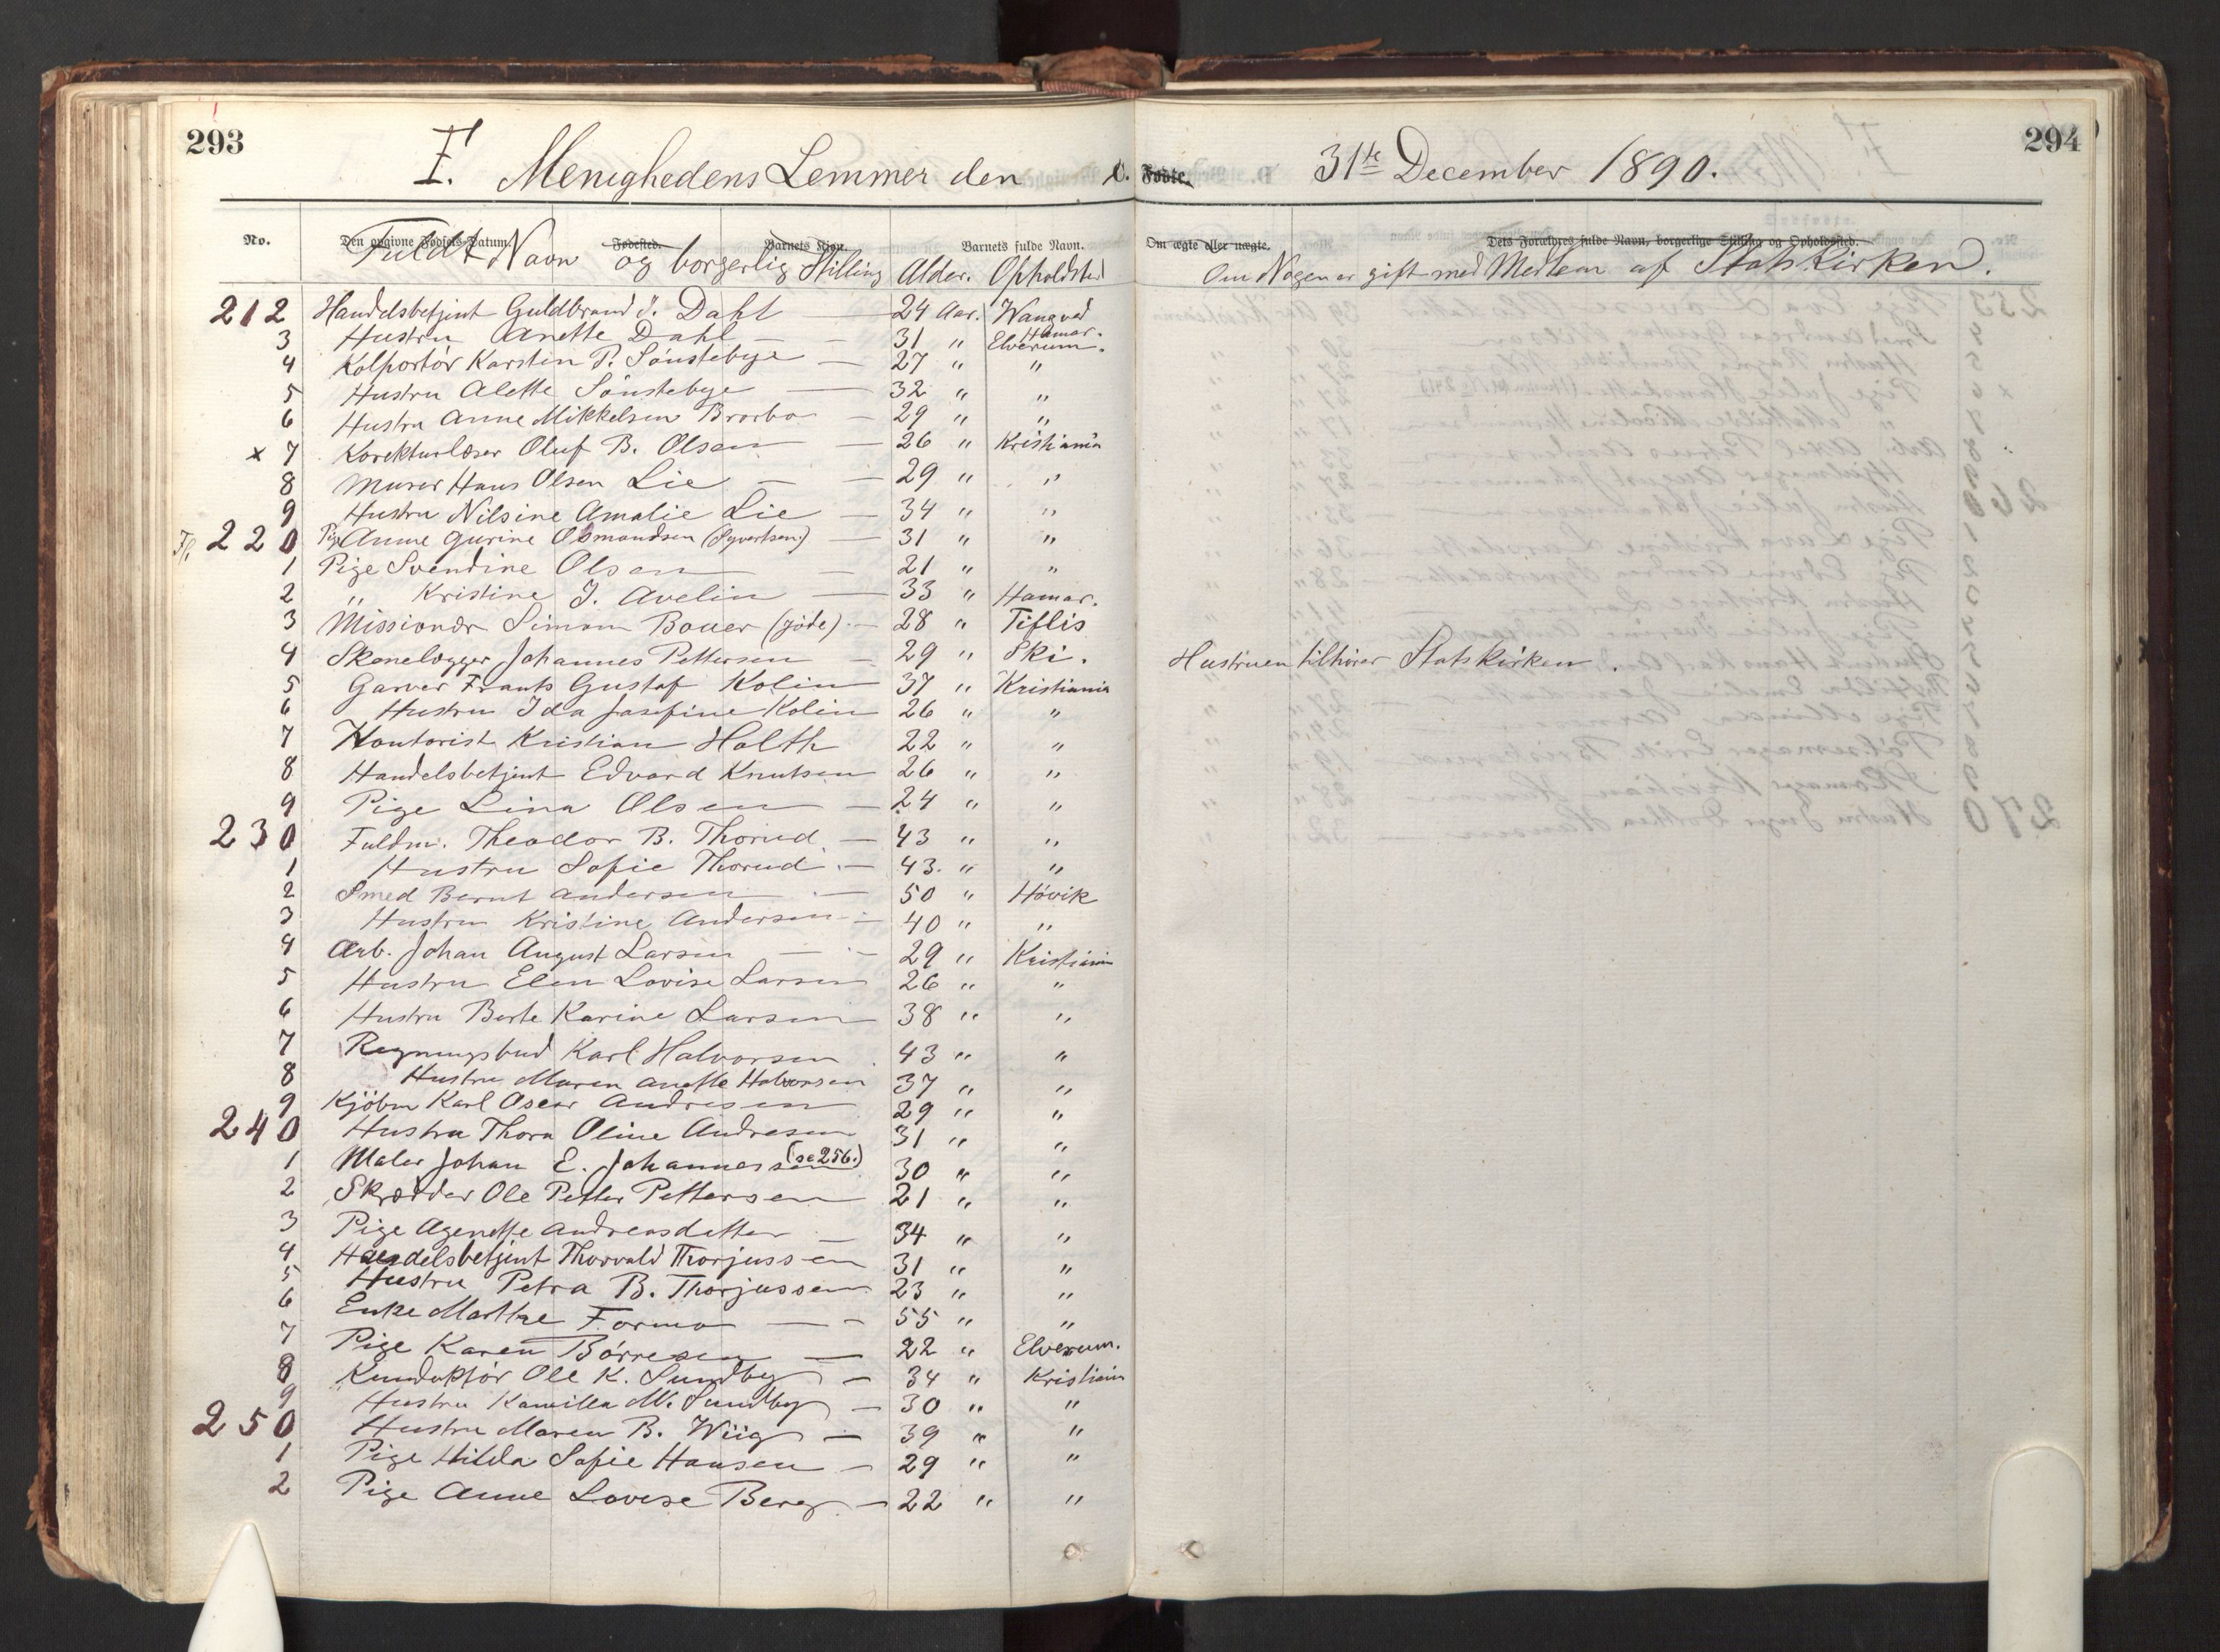 293
F. Menighedens Lemmer den
C. Fødte.
31te December 1890.
294
No.
Den opgivne Fødsels-Datum.
Fødested.
Barnets Kjøn.
Barnets fulde Navn.
Om ægte eller uægte.
Dets Forældres fulde Navn, borgerlige Stilling og Opholdssted.
Fuldt Navn og borgerlig Stilling Alder. Opholdsted
Om Nogen er gift med Medlem af Statskirken.
212 Handelsbetjent Guldbrand J. Dahl — 24 Aar. Wang ved Hamar.
3 Hustru Anette Dahl — 31 " Elverum.
4 Kolportör Karstin P. Sönstebye — 27 " "
5 Hustru Alette Sönstebye — 32 " "
6 Hustru Anne Mikkelsen Brorbo — 29 " "
x 7 Korekturlæser Oluf B. Olsen — 26 " Kristiania
8 Murer Hans Olsen Lie — 29 " "
9 Hustru Nilsine Amalie Lie — 34 " "
220 Pige Anne Gurine Osmundsen (Syvertsen) — 31 " "
1 Pige Svendine Olsen — 21 " "
2 " Kristine J. Avelin — 33 " Hamar.
3 Missionær Simon Bauer (jöde) — 28 " Tiflis
4 Skenelægger Johannes Pettersen — 29 " Ski. Hustruen tilhörer Statskirken.
5 Garver Frants Gustaf Kolin 37 " Kristiania
6 Hustru Ida Josefine Kolin 26 " "
7 Kontorist Kristian Holth 22 " "
8 Handelsbetjent Edvard Knutsen 26 " "
9 Pige Lina Olsen — 24 " "
230 Fuldm. Theodor B. Thorud — 43 " "
1 Hustru Sofie Thorud — 43 " "
2 Smed Bernt Andersen — 50 " Hövik
3 Hustru Kristine Andersen — 40 " "
4 Arb. Johan August Larsen — 29 " Kristiania
5 Hustru Elen Lovise Larsen 26 " "
6 Hustru Berte Karine Larsen 38 " "
7 Regningsbud Karl Halvorsen 43 " "
8 Hustru Maren Anette Halvorsen 37 " "
9 Kjöbm Karl Oscar Andresen 29 " "
240 Hustru Thora Oline Andresen 31 " "
1 Maler Johan E. Johannessen (se 256.) 30 " "
2 Skrædder Ole Petter Pettersen 21 " "
3 Pige Agenette Andreasdatter — 34 " "
4 Handelsbetjent Thorvald Thorjussen 31 " "
5 Hustru Petra B. Thorjussen 23 " "
6 Enke Marthe Formo — 55 " "
7 Pige Karen Börresen — 22 " Elverum.
8 Kunduktör Ole K. Sundby — 34 " Kristiania
9 Hustru Kamilla M. Sundby — 30 " "
250 Hustru Maren B. Wiig — 39 " "
1 Pige Hilda Sofie Hansen — 29 " "
2 Pige Anne Lovise Berg — 22 " "